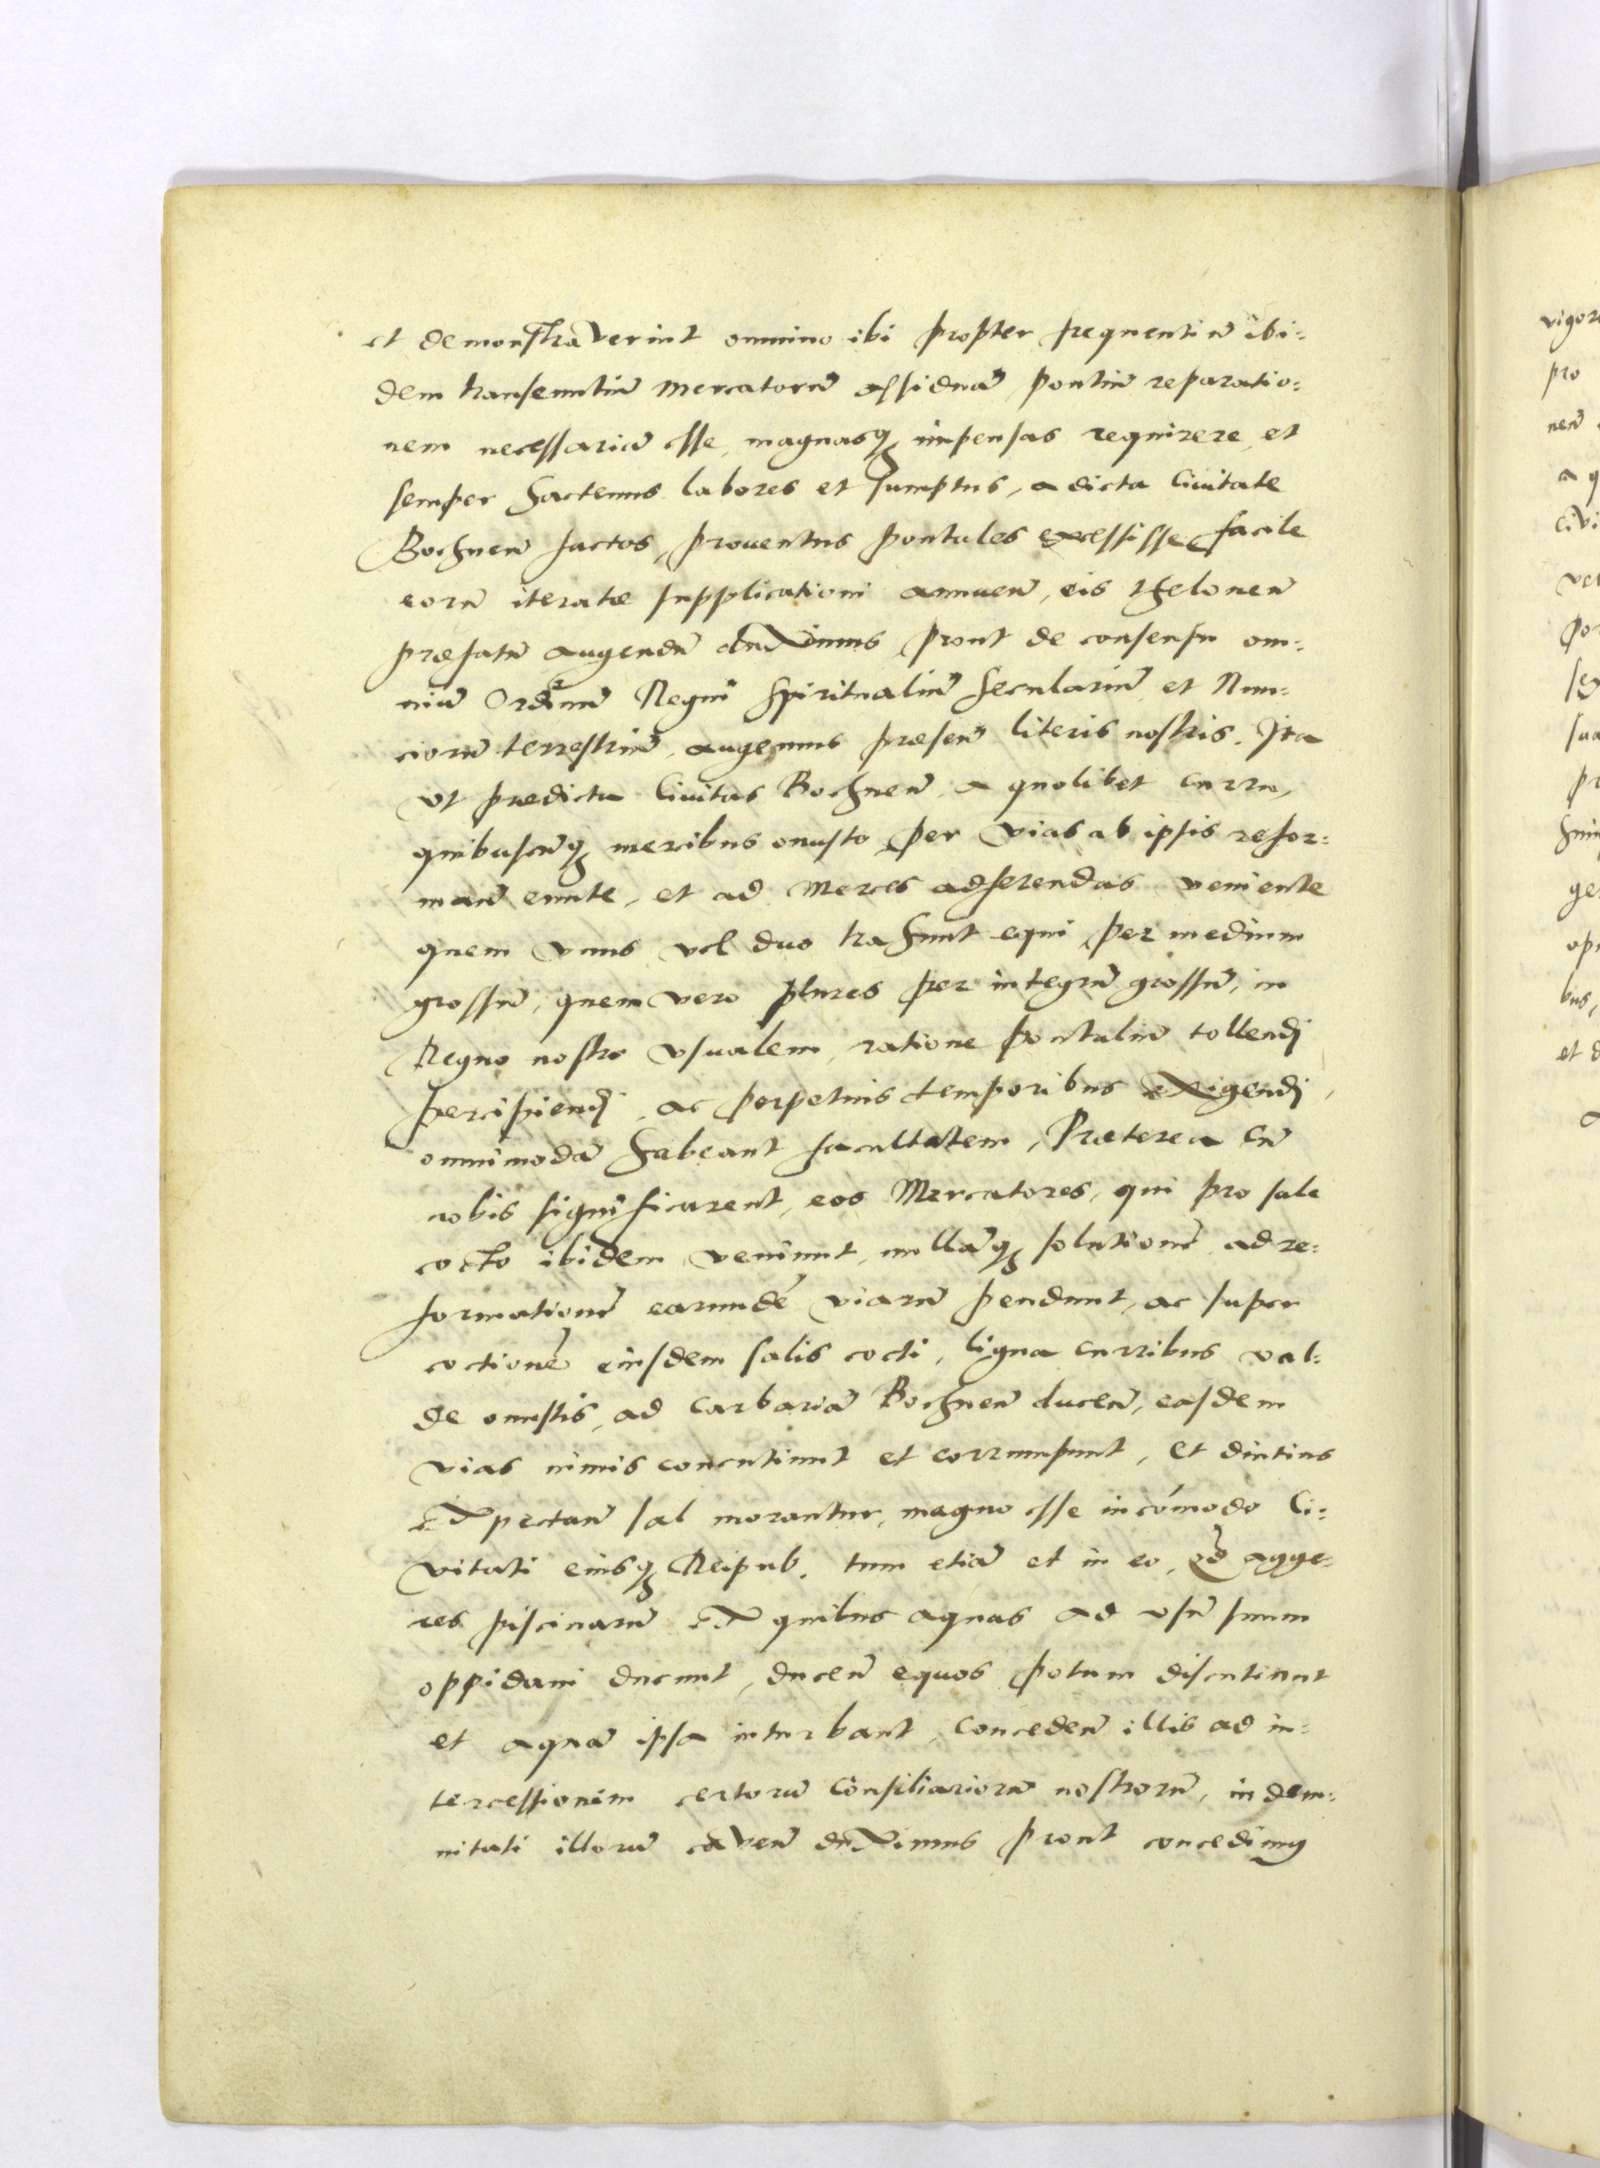 et demonstraverint omnino ibi propter frequentiā ibi:
dem transeuntiū Mercatorū assiduā pontiū reparatio:
nem necessariā esse, magnasq3 impensas requirere, et
semper hactenus labores et sumptus, a dicta Civitate
Bochneñ factos, proventus pontales excessisse, facile
eorū iteratæ supplicationi annueñ, eis theloneū
præfatū augendū duximus prout de consensu om:
niū Ordinū Regni Spiritualiū secularium et Nun:
ciorū terrestriū, augemus præseñ literis nostris. Ita
ut prædicta Civitas Bochneñ, a quolibet curru,
quibuscūq3 mercibus onusto, per vias ab ipsis refor:
mañ eunte, et ad Merces adferendas veniente
quem vnus vel duo trahunt equi per medium
grossū, quem vero plures per integrū grossū, in
Regno nostro vsualem, ratione pontaliū tollendj
percipiendj, ac perpetuis temporibus exigendj,
omnimodā habeant facultatem, Præterea cū
nobis significarent, eos Mercatores, qui pro sale
cocto ibidem veniunt, nullāq3 solutionē ad re:
formationē earundē viarū pendunt, ac super
coctionē eiusdem salis cocti, ligna curribus val:
de onustis, ad Carbariā Bochneñ duceñ, easdem
vias nimis concutiunt et corrumpunt, et diutius
expectañ sal morantur, magno esse incōmodo Ci:
vitati eiusq3 Reipub. tum etiā et in eo, qd agge:
res piscinarū ex quibus aquas ad vsū suum
oppidani ducunt, duceñ equos potum discutiunt
et aquā ipsā inturbant, Concedeñ illis ad in:
tercessionem certorū Consiliariorū nostrorū, indem:
nitati illorū caveñ duximus prout concedimus